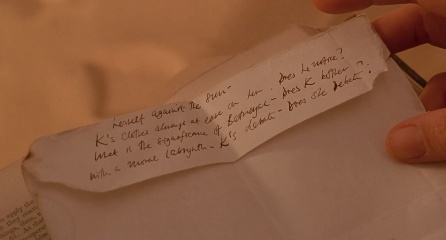 herself against the sun-
K's clothes always at ease on her. Does he notice?
What is the significance of Betrayal - Does K bother
with a moral labyrinth - K's debate - Does she Debate?